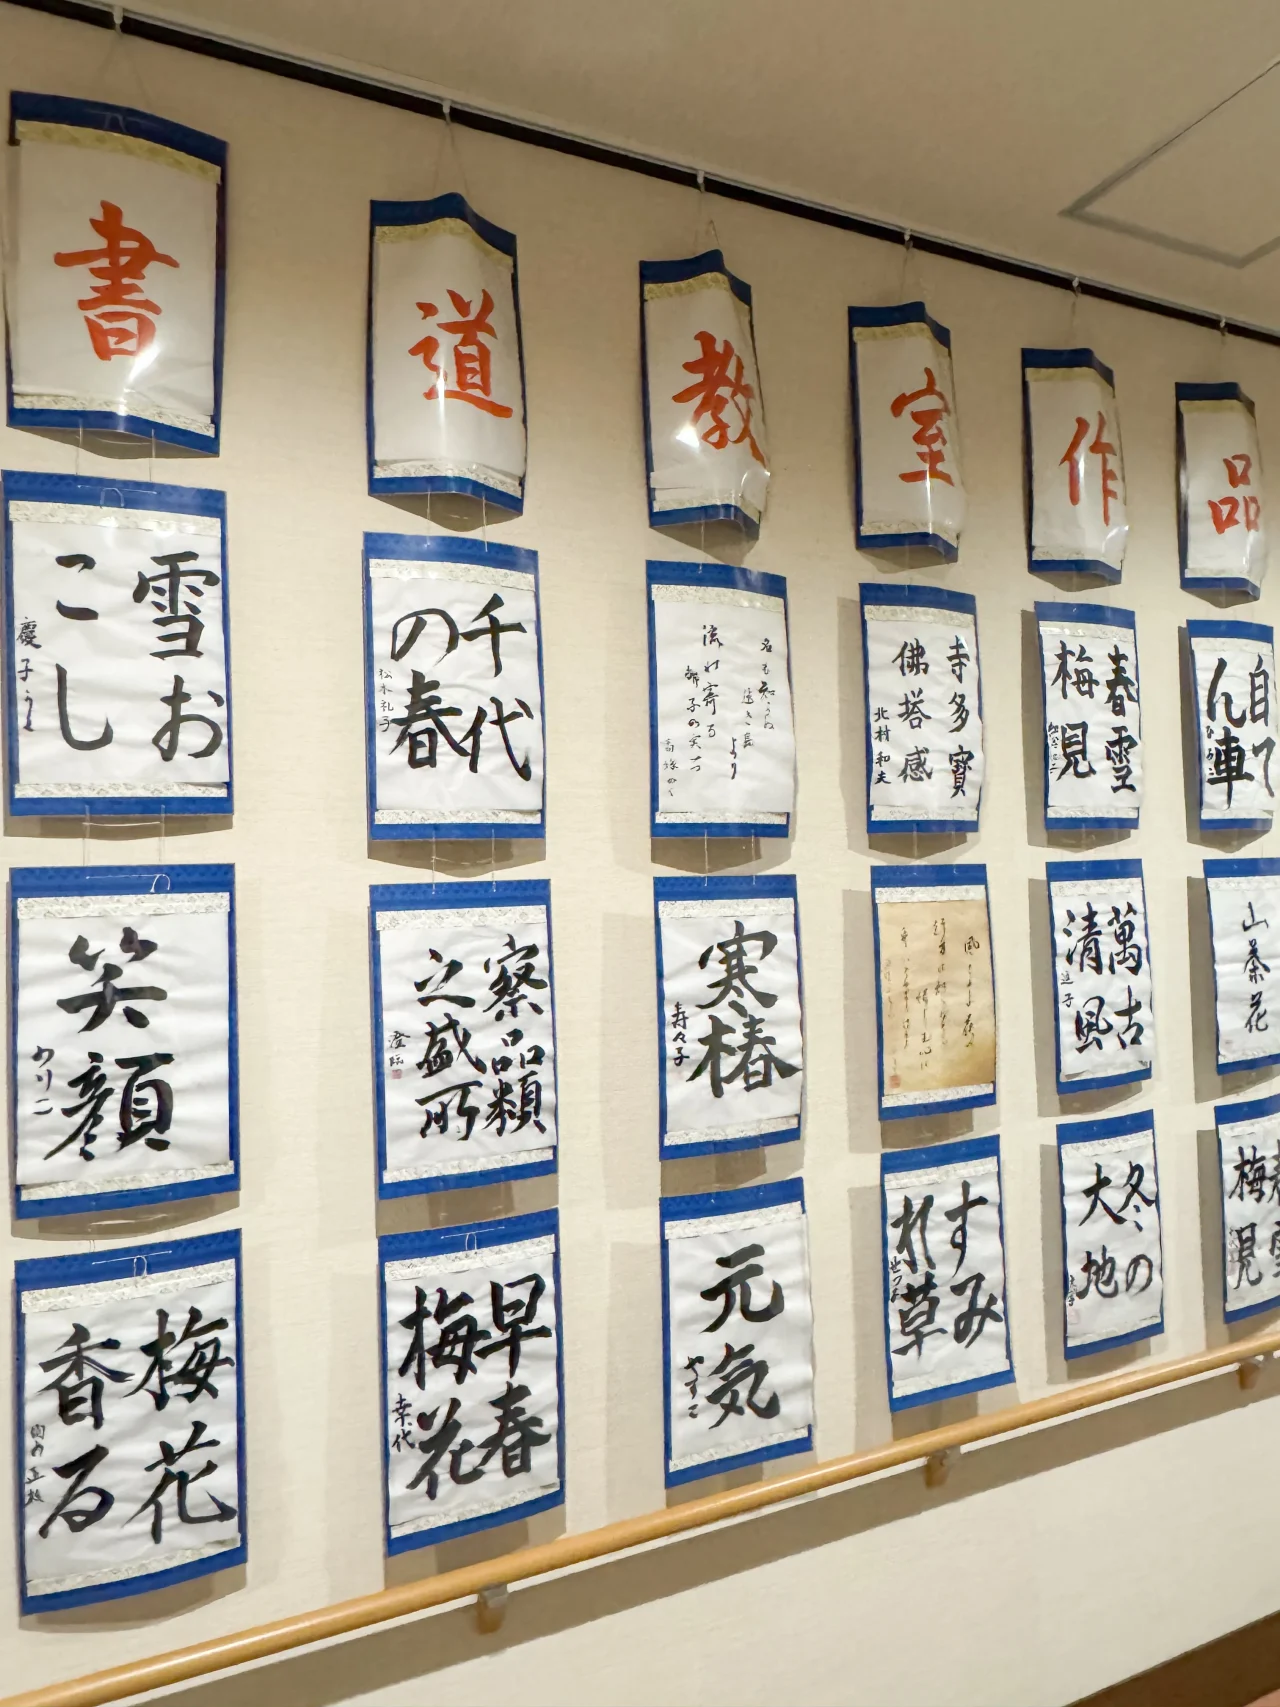 書道教室作品
雪お
こし
慶子
千代
の春
松本礼子
名も知らぬ
遠き島
より
流れ寄る
椰子の実一つ
寺多寶
佛塔感
北村和夫
春雪
梅見
自て
ん車
笑顔
察品類
之盛所
寒椿
寿々子
萬古
清風
山茶花
梅花
香る
早春
梅花
幸代
元気
やすこ
すみ
れ草
冬の
大地
春雪
梅見